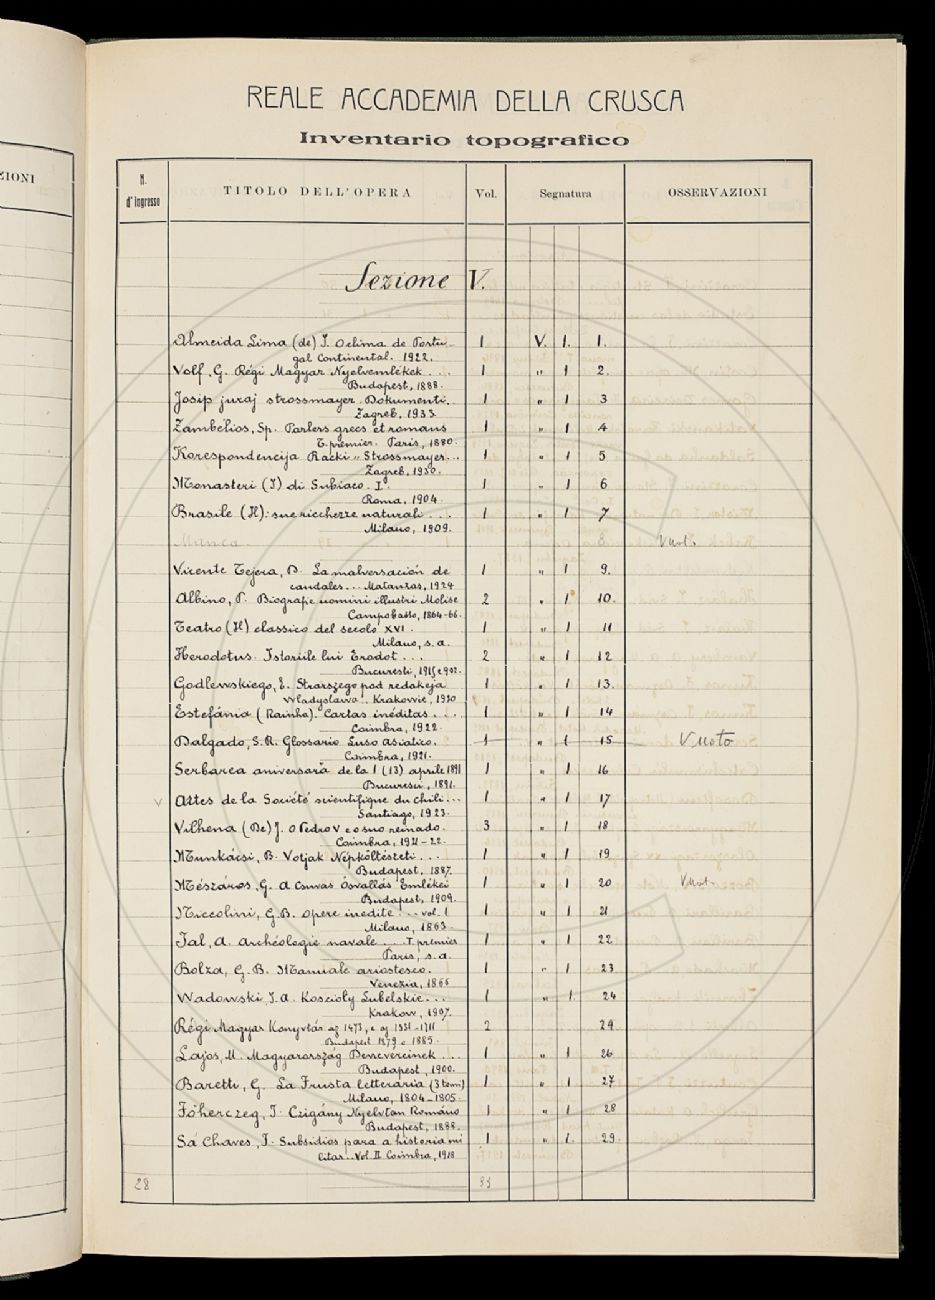 ZIONI
REALE ACCADEMIA DELLA CRUSCA
Inventario topografico
N. d'Ingresso TITOLO DELL'OPERA Vol. Segnatura OSSERVAZIONI
Sezione V.
Almeida Lima (de) J. O clima de Portu- 1 V. 1. 1.
gal Continental. 1922.
Volf, G. Régi Magyar Nyelvemlékek ... 1 " 1 2.
Budapest, 1888.
Josip juraj strossmayer. Dokumenti. 1 " 1 3
Zagreb, 1933
Zambélios, Sp. Parlers grecs et romans 1 " 1 4
T. premier. Paris, 1880.
Korespondencija Rački - Strossmayer... 1 " 1 5
Zagreb, 1930.
Monasteri (I) di Subiaco. I. 1 " 1 6
Roma, 1904.
Brasile (Il): sue ricchezze naturali ... 1 " 1 7
Milano, 1909.
Manca 8 Vuot.
Vicente Tejera, D. La malversación de 1 " 1 9.
caudales... Matanzas, 1924
Albino, P. Biografie uomini illustri Molise 2 " 1 10.
Campobasso, 1864-66.
Teatro (Il) classico del secolo XVI. 1 " 1 11
Milano, s.a.
Herodotus. Istoriile lui Erodot ... 2 " 1 12
Bucuresti, 1915 e 902.
Godlewskiego, E. Starszego pod redakcja 1 " 1 13.
Wladyslawa. Krakowie, 1920
Estefánia (Rainha). Cartas inéditas ... 1 " 1 14
Coimbra, 1922.
Dalgado, S.R. Glossario Luso Asiatico. 1 " 1 15 Vuoto
Coimbra, 1921.
Serbarea aniversară de la 1 (13) aprile 1891 1 " 1 16
Bucuresci, 1891.
v Actes de la Société scientifique du chili... 1 " 1 17
Santiago, 1923.
Vilhena (De) J. O Pedro V e o suo reinado. 3 " 1 18
Coimbra, 1921-22.
Munkácsi, B. Votjak Népköltészeti ... 1 " 1 19
Budapest, 1887.
Mészáros, G. A Csuvas Ősvallás Emlékei 1 " 1 20 Vuot.
Budapest, 1909.
Niccolini, G.B. Opere inedite ... vol. 1 1 " 1 21
Milano, 1863.
Jal, A. Archéologie navale ... T. premier 1 " 1 22
Paris, s.a.
Bolza, G.B. Manuale ariostesco. 1 " 1 23
Venezia, 1866
Wadowski, J.A. Koscioły Lubelskie... 1 " 1. 24
Krakow, 1907.
Régi Magyar Konyvtár az 1473, e az 1531-1711 2 24
Budapest 1879 e 1885.
Lajos, M. Magyarország Denevéreinek ... 1 " 1 26
Budapest, 1900.
Baretti, G. La Frusta letteraria (3 tomi) 1 " 1 27
Milano, 1804-1805.
Főherczeg, J. Czigány Nyelvtan Románo 1 " 1 28
Budapest, 1888.
Sá Chaves, J. Subsidios para a historia mi 1 " 1. 29.
litar. Vol. II Coimbra, 1918
28 33